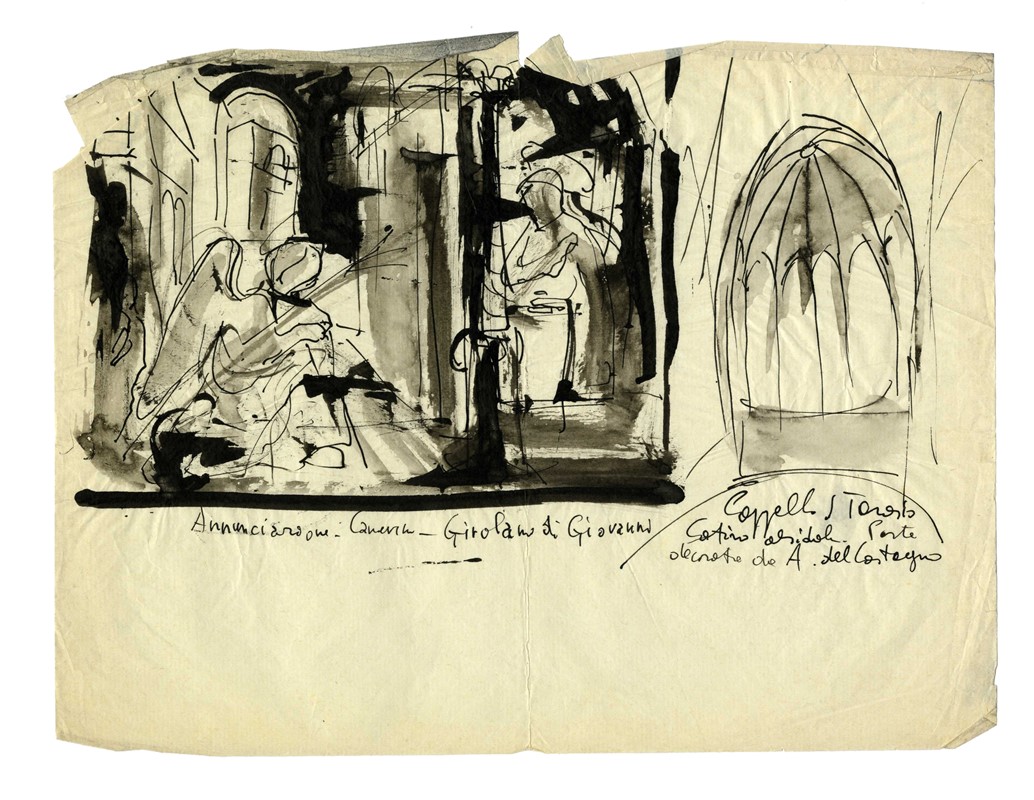 Annunciazione - Camerin - Girolamo di Giovanni
Cappella S Tarasio
Catino absidale. Parte
decorata da A. del Castagno